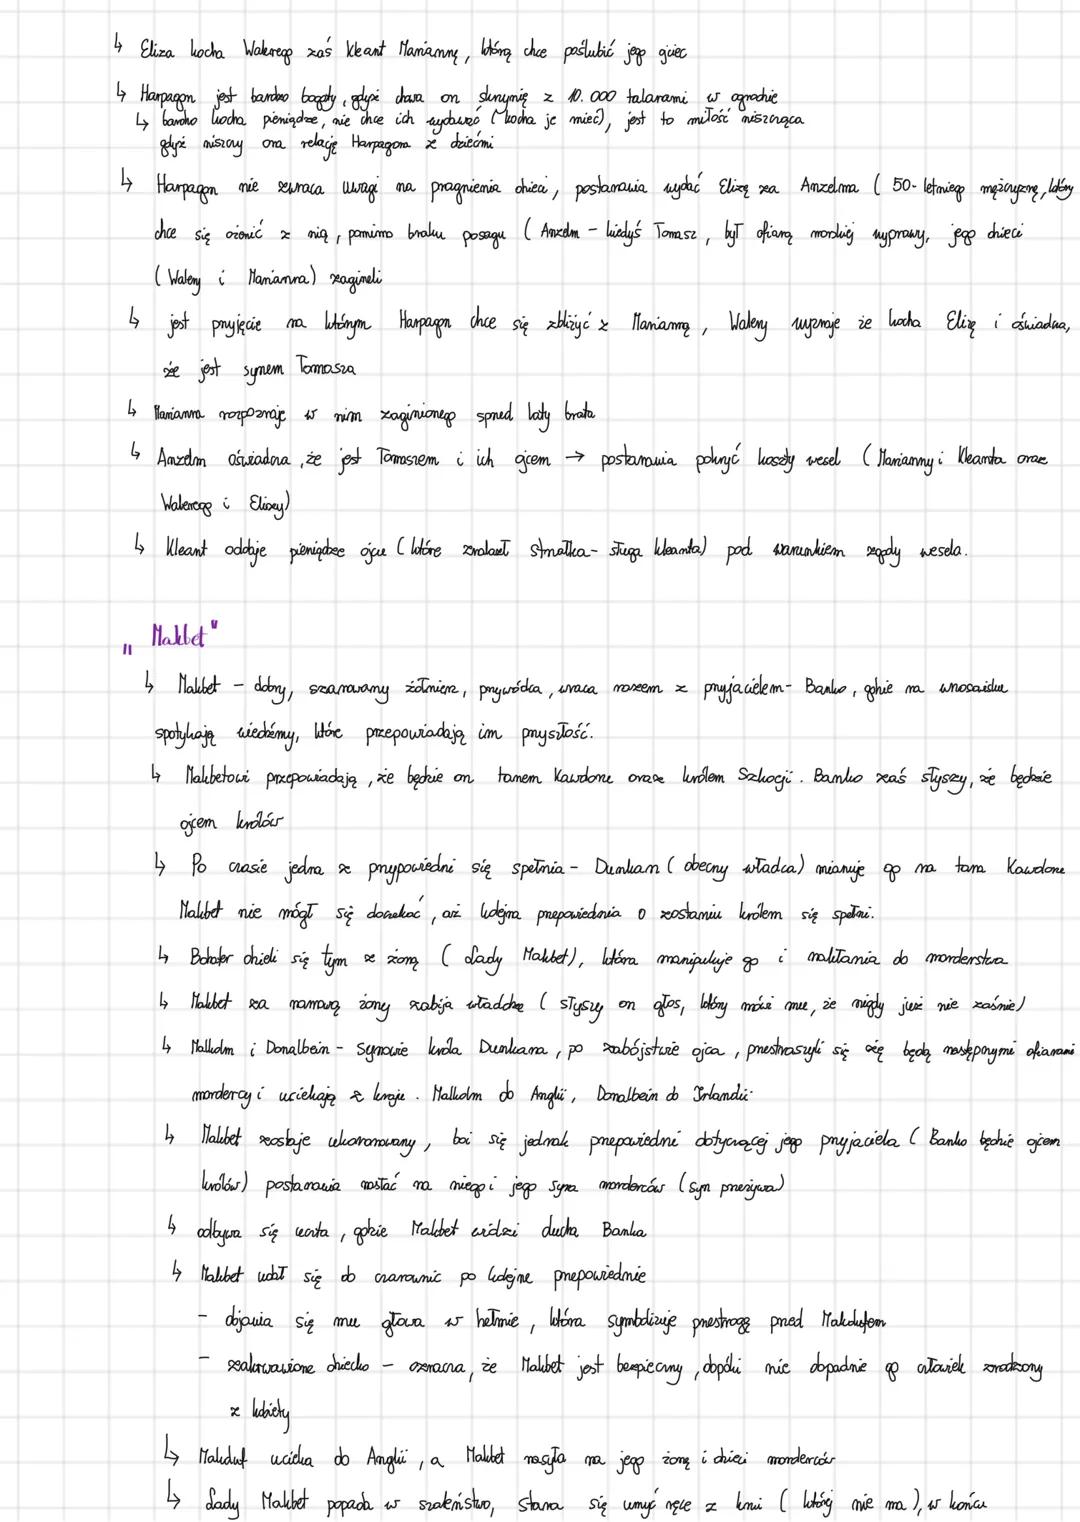 ↳ Eliza kocha Walerego zaś Kleant Mariannę, którą chce poślubić jego ojciec
↳ Harpagon jest bardzo bogaty, gdyż chowa on skrzynię z 10.000 talarami w ogrodzie
↳ bardzo kocha pieniądze, nie chce ich wydawać (kocha je mieć), jest to miłość niszcząca
gdyż niszczy ona relację Harpagona z dziećmi
↳ Harpagon nie zwraca uwagi na pragnienia dzieci, postanawia wydać Elizę za Anzelma ( 50-letniego mężczyznę, który
chce się ożenić z nią, pomimo braku posagu ( Anzelm - kiedyś Tomasz, był ofiarą morskiej wyprawy, jego dzieci
( Walery i Marianna) zaginęli
↳ jest przyjęcie na którym Harpagon chce się zbliżyć z Marianną, Walery wyznaje że kocha Elizę i oświadcza,
że jest synem Tomasza
↳ Marianna rozpoznaje w nim zaginionego sprzed laty brata
↳ Anzelm oświadcza, że jest Tomaszem i ich ojcem → postanawia pokryć koszty wesel ( Marianny i Kleanta oraz
Walerego i Elizy)
↳ Kleant oddaje pieniądze ojcu ( które znalazł strzałka - sługa kleanta) pod warunkiem zgody wesela.
„Makbet"
↳ Makbet - dobry, szanowany żołnierz, przywódca, wraca razem z przyjacielem - Banko, gdzie na wrzosowisku
spotykają wiedźmy, które przepowiadają im przyszłość.
↳ Makbetowi przepowiadają, że będzie on tanem Kawdoru oraz królem Szkocji. Banko zaś słyszy, że będzie
ojcem królów
↳ Po czasie jedna z przypowiedni się spełnia - Dunkan ( obecny władca) mianuje go na tana Kawdoru
Makbet nie mógł się doczekać, aż kolejna przepowiednia o zostaniu królem się spełni.
↳ Bohater dzieli się tym z żoną ( Lady Makbet), która manipuluje go i nakłania do morderstwa
↳ Makbet za namową żony zabija władcę ( słyszy on głos, który mówi mu, że nigdy już nie zaśnie)
↳ Malkolm i Donalbein - Synowie króla Dunkana, po zabójstwie ojca, przestraszyli się że będą następnymi ofiarami
mordercy i uciekają z kraju. Malkolm do Anglii, Donalbein do Irlandii
↳ Makbet zostaje ukoronowany, boi się jednak przepowiedni dotyczącej jego przyjaciela ( Banko będzie ojcem
królów) postanawia nasłać na niego i jego syna morderców (syn przeżywa)
↳ odbywa się uczta, gdzie Makbet widzi ducha Banka
↳ Makbet udał się do czarownic po kolejne przepowiednie
- objawia się mu głowa w hełmie, która symbolizuje przestrogę przed Makdufem
- zakrwawione dziecko - oznacza, że Makbet jest bezpieczny, dopóki nie dopadnie go człowiek zrodzony
z kobiety
↳ Makduf ucieka do Anglii, a Makbet nasyła na jego żonę i dzieci morderców
↳ Lady Makbet popada w szaleństwo, stara się umyć ręce z krwi ( której nie ma), w końcu